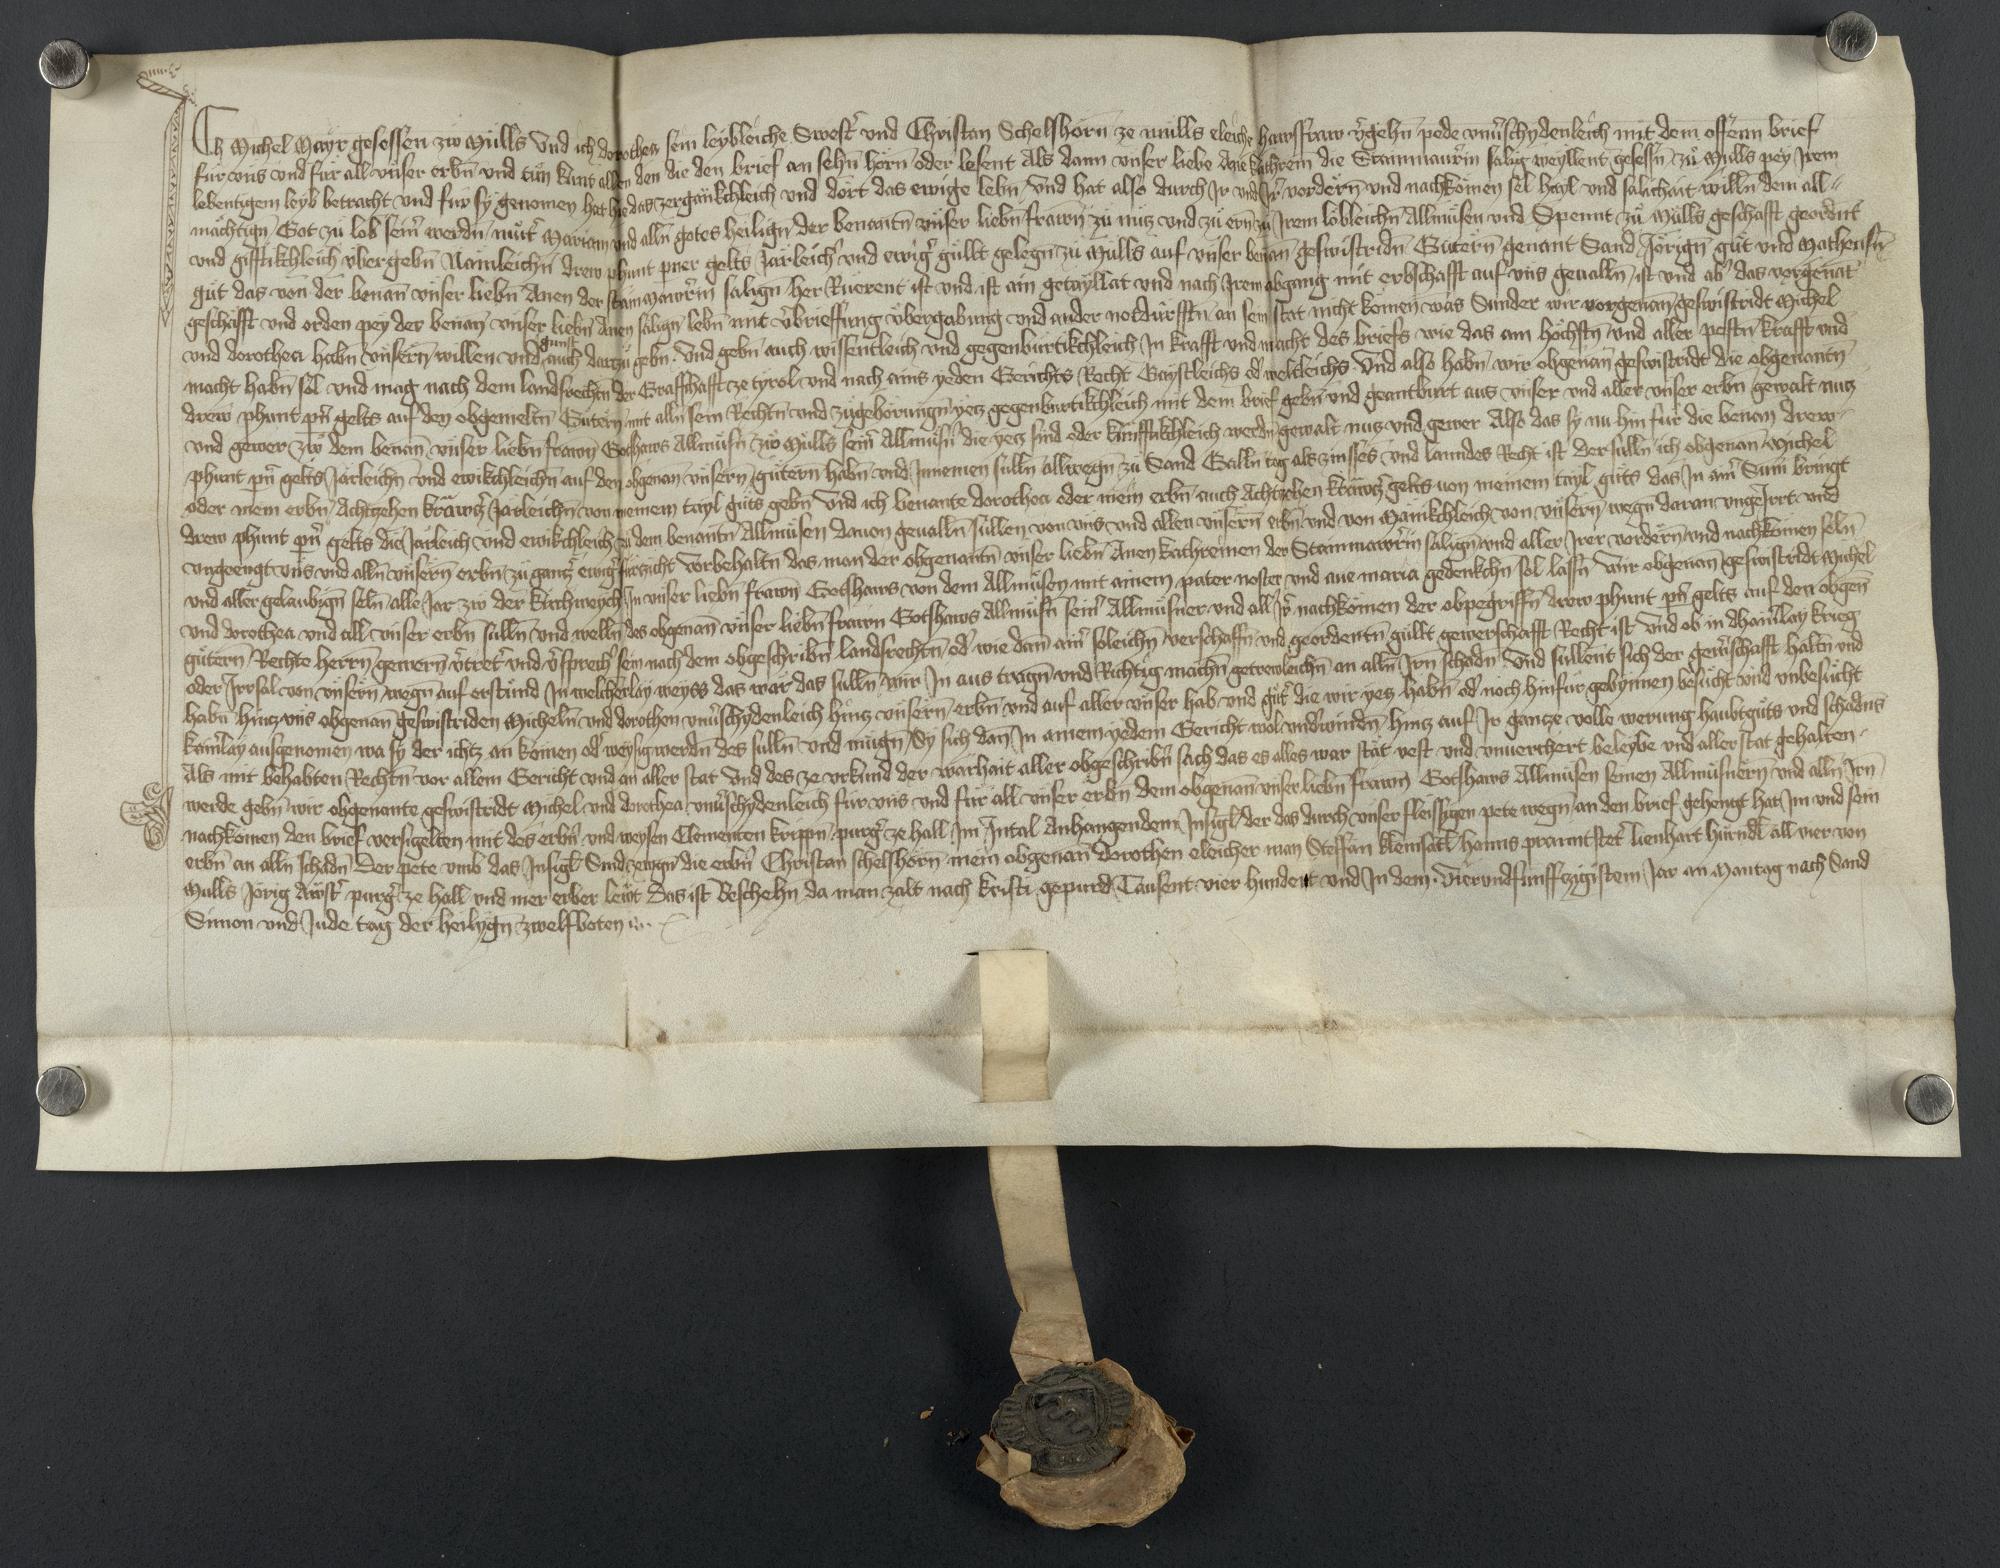 Ich Michel Mayr gesessen zw Müllß Und ich dorothea sein leybleiche Swest̄ vnd Christan Schelshorn ze mulls eleiche hawsfraw v̄gehn̄ pede vnu̇schydenleich mit dem offenn brief
für vnns vnd für all vnser erbn̄ vnd tün kunt allen den die den brief an sehn̄ hörn̄ oder lesent Als dann vnser liebe Anen kathrein die Stainmaur̄in salig weyllent gesessn̄ zů Mulls pey Irem
lebentigem leyb betracht vnd für sy genomen hat hie das zergänkchleich vnd dort das ewige lebn̄ Vnd hat also durch Ir vnd Ir̄ vordern̄ vnd nachkömen sel hayl vnd salichait willn̄ dem all-
mächtign̄ Got zu lob sein̄ werdn̄ mut̄ Mariam vnd alln̄ gotes heilign̄ der benantn̄ vnser liebn̄ frawn̄ zu nutz vnd zů ern̄ zu Irem löbleichn̄ Allmüsen vnd Spennt zů Mulls geschafft geordent
und gifftikhleich vbergebn̄ Nämleichn̄ drew phunt pner gelts Järleich̄ vnd ewiḡ güllt gelegn̄ zu Mulls auf vnser benan̄ geswistridn̄ Gütern̄ genant Sand Jörign̄ güt vnd Mathensn̄
güt das von der benan̄ vnser liebn̄ Anen der stainmawr̄in salign̄ her Rüerent ist vnd ist ain getayllat vnd nach Irem abgang mit erbschafft auf vns geualln̄ ist vnd ab̄ das vorgenāt
geschafft vnd orden pey der benan̄ vnser liebn̄ Anen salign̄ lebn̄ mit v̄brieffung vbergabung vnd ander notdürfftn̄ an sein stat nicht kömen was Sunder wir vorgenan̄ geswistridt Michel
und dorothea habn̄ vnsern̄ willen vnd gunst auch dartzu gebn̄ Vnd gebn̄ auch wissentleich vnd gegenburtikchleich In krafft vnd macht des briefs wie das am höchstn̄ vnd aller pestn̄ krafft vnd
macht habn̄ sol vnd mag nach dem landsrechtn̄ der Graffschafft ze tyrol vnd nach ains yeden Gerichts Recht Gaystleichs od̄ weltleichs Vnd also habn̄ wir obgenan̄ geswistridt die obgenantn̄
drew phunt pn̄ gelts auf den obgemeltn̄ Gütern̄ mit alln̄ sein Rechtn̄ vnd zugehörungn̄ yetz gegenburtikchleich mit dem brief gebn̄ vnd geantburt aus vnser vnd aller vnser erbn̄ gewalt nutz
und gewer zw dem benan̄ vnser liebn̄ frawn̄ Gotshaws Allmüsn̄ zw Mulls sein̄ Allmüsn̄ die yetz sind oder künfftikchleich werdn̄ gewalt nutz vnd gewer Also das sy nu hin für die benan̄ drew
phunt pn̄ gelts Järleichn̄ vnd ewikchleichn̄ auf den obgenan̄ vnsern̄ gütern̄ habn̄ vnd Innemen sulln̄ allwegn̄ zu Sand Galln̄ tag als zinsses vnd lanndes Recht ist der sulln̄ ich obgenan̄ Michel
oder mein erbn̄ Achtzehen krawtz̄ Järleichn̄ von meinem tayl güts gebn̄ Vnd ich benante dorothea oder mein erbn̄ auch Achtzehen krawtz̄ gelts von meinem tayl güts das In ain̄ Sum̄ bringt
drew phunt pn̄ gelts die Järleich vnd ewikchleich zu dem benantn̄ Allmüsen dauon geualln̄ süllen von vns vnd allen vnsern̄ erbn̄ vnd von Mänikchleich von vnsern̄ wegn̄ daran vngeIrrt vnd
vngeengt vns vnd alln̄ vnsern̄ erbn̄ zu gantz̄ ewiḡ fürzicht Vorbehaltn̄ das man der obgenantn̄ vnser liebn̄ Anen kathreinen der Stainmawr̄in salign̄ vnd aller Irer vordern̄ vnd nachkömen seln̄
und aller gelaubign̄ seln̄ alle Jar zw der kirchweych In vnser liebn̄ frawn̄ Gotshaws von dem Allmüsen mit ainem pater noster vnd aue maria gedenkchn̄ sol lassn̄ Wir obgenan̄ geswistridt Michel
und dorothea vnd all vnser erbn̄ sulln̄ vnd welln̄ des obgenan̄ vnser liebn̄ frawn Gotshaws Allmüsn̄ sein̄ Allmüsner vnd all Ir̄ nachkömen der obpegriffn̄ drew phunt pn̄ gelts auf den obgen̄
gütern̄ Rechte herrn̄ gewern̄ v̄tret̄ vnd v̄sprech̄ sein nach dem obgeschribn̄ landsrechtn̄ od̄ wie dan̄ ain̄ soleichn̄ verschaffn̄ vnd geordentn̄ güllt gewerschafft Recht ist Vnd ob in dhain̄lay krieg
oder Irrsal von vnsern̄ wegn̄ auf erstünd In welcherlay weyss das wär das sulln̄ wir In aus tragn̄ vnd Richtig machn̄ getrewleichn̄ an alln̄ Irn̄ schadn̄ Vnd sullent sich der gewrschafft haltn̄ vnd
habn̄ hintz vns obgenan̄ geswistriden Micheln̄ vnd dorothen vnu̇schydenleich hintz vnsern̄ erbn̄ vnd auf aller vnser hab vnd güt̄ die wir yetz habn̄ od̄ noch hinfür gebynnen besücht vnd vnbesücht
kain̄lay ausgenomen wa sy der ichtz an kömen od̄ weysig werdn̄ des sulln̄ vnd mügn̄ Sy sich dan̄ In ainem yedem Gericht wol vnd̄winden hintz auf Ir gantze volle werung haubtgüts vnd schadns
Als mit behabten Rechtn̄ vor allem Gericht vnd an aller stat Vnd des ze vrkund der warhait aller obgeschribn̄ sach das es alles war stät vest vnd vnuerchert beleybe vnd aller stat gehalten
werde gebn̄ wir obgenante geswistridt Michel vnd dorothea vnu̇schydenleich für vns vnd für all vnser erbn̄ dem obgenan̄ vnser liebn̄ frawn̄ Gotshaws Allmüsen seinen Allmüsnern̄ vnd alln̄ Irn̄
nachkömen den brief versigelten mit des erbn̄ vnd weysen Clementen krippn̄ purḡ ze hall Im Intal Anhangendem Insigl der das durch vnser fleissigen pete wegn̄ an den brief gehengt hat Im vnd sein
erbn̄ an alln̄ schadn̄ Der pete vmb das Insigl Sind zewgn̄ die erbn̄ Christan schelshorn̄ mein obgenan̄ dorothen eleicher man Steffan klemsatl̄ hanns pranntstet̄ lienhart hürndl̄ all vier von
Mulls Jörig Awst̄ purḡ ze hall vnd mer erber lewt Das ist Beschehn̄ da man zalt nach kristi gepurd Tausent vier hundert vnd In dem vierundfunfftzigistem Jar an Mantag nach Sand
Simon vnd Jude tag der heilign̄ zwelfboten